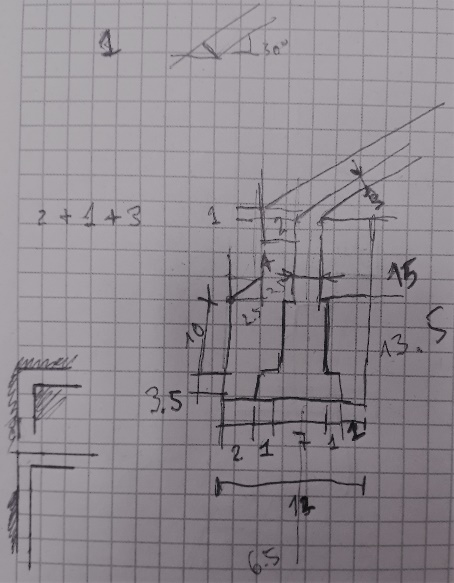 1
30°
2 + 1 + 3
1
2
3
A
15
25
10
13.5
3.5
2 1 7 1 2
13
6.5